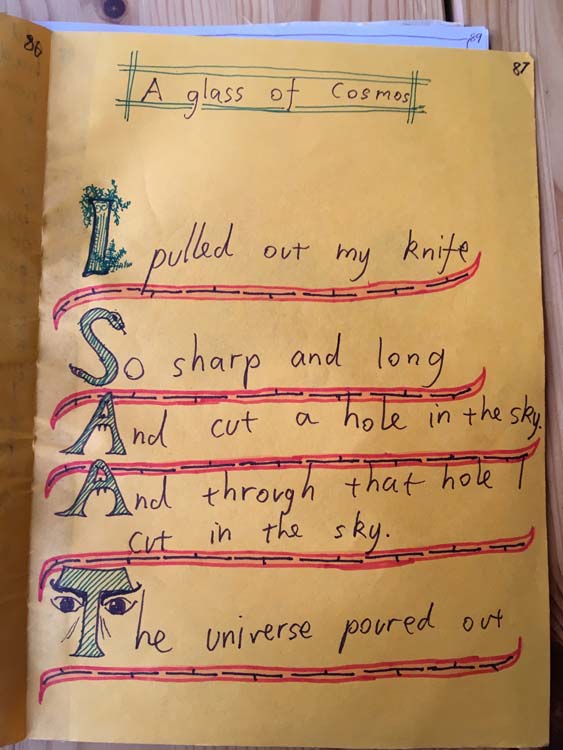 86
p89
87
A glass of Cosmos
I pulled out my knife
So sharp and long
And cut a hole in the sky.
And through that hole I
cut in the sky.
The universe poured out